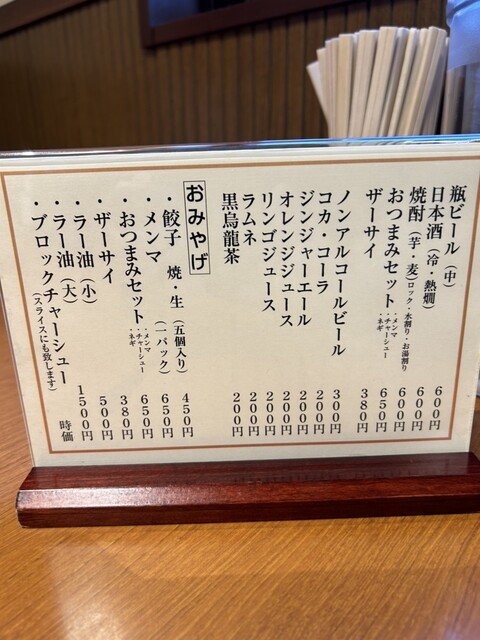 瓶ビール（中） 600円
日本酒（冷・熱燗） 600円
焼酎（芋・麦）ロック・水割り・お湯割り 600円
おつまみセット ・メンマ ・チャーシュー ・ネギ 650円
ザーサイ 380円
ノンアルコールビール 300円
コカ・コーラ 200円
ジンジャーエール 200円
オレンジジュース 200円
リンゴジュース 200円
ラムネ 200円
黒烏龍茶 200円
おみやげ
・餃子 焼・生（五個入り） 450円
・メンマ （一パック） 650円
・おつまみセット ・メンマ ・チャーシュー ・ネギ 650円
・ザーサイ 380円
・ラー油（小） 500円
・ラー油（大） 1500円
・ブロックチャーシュー 時価
（スライスにも致します）